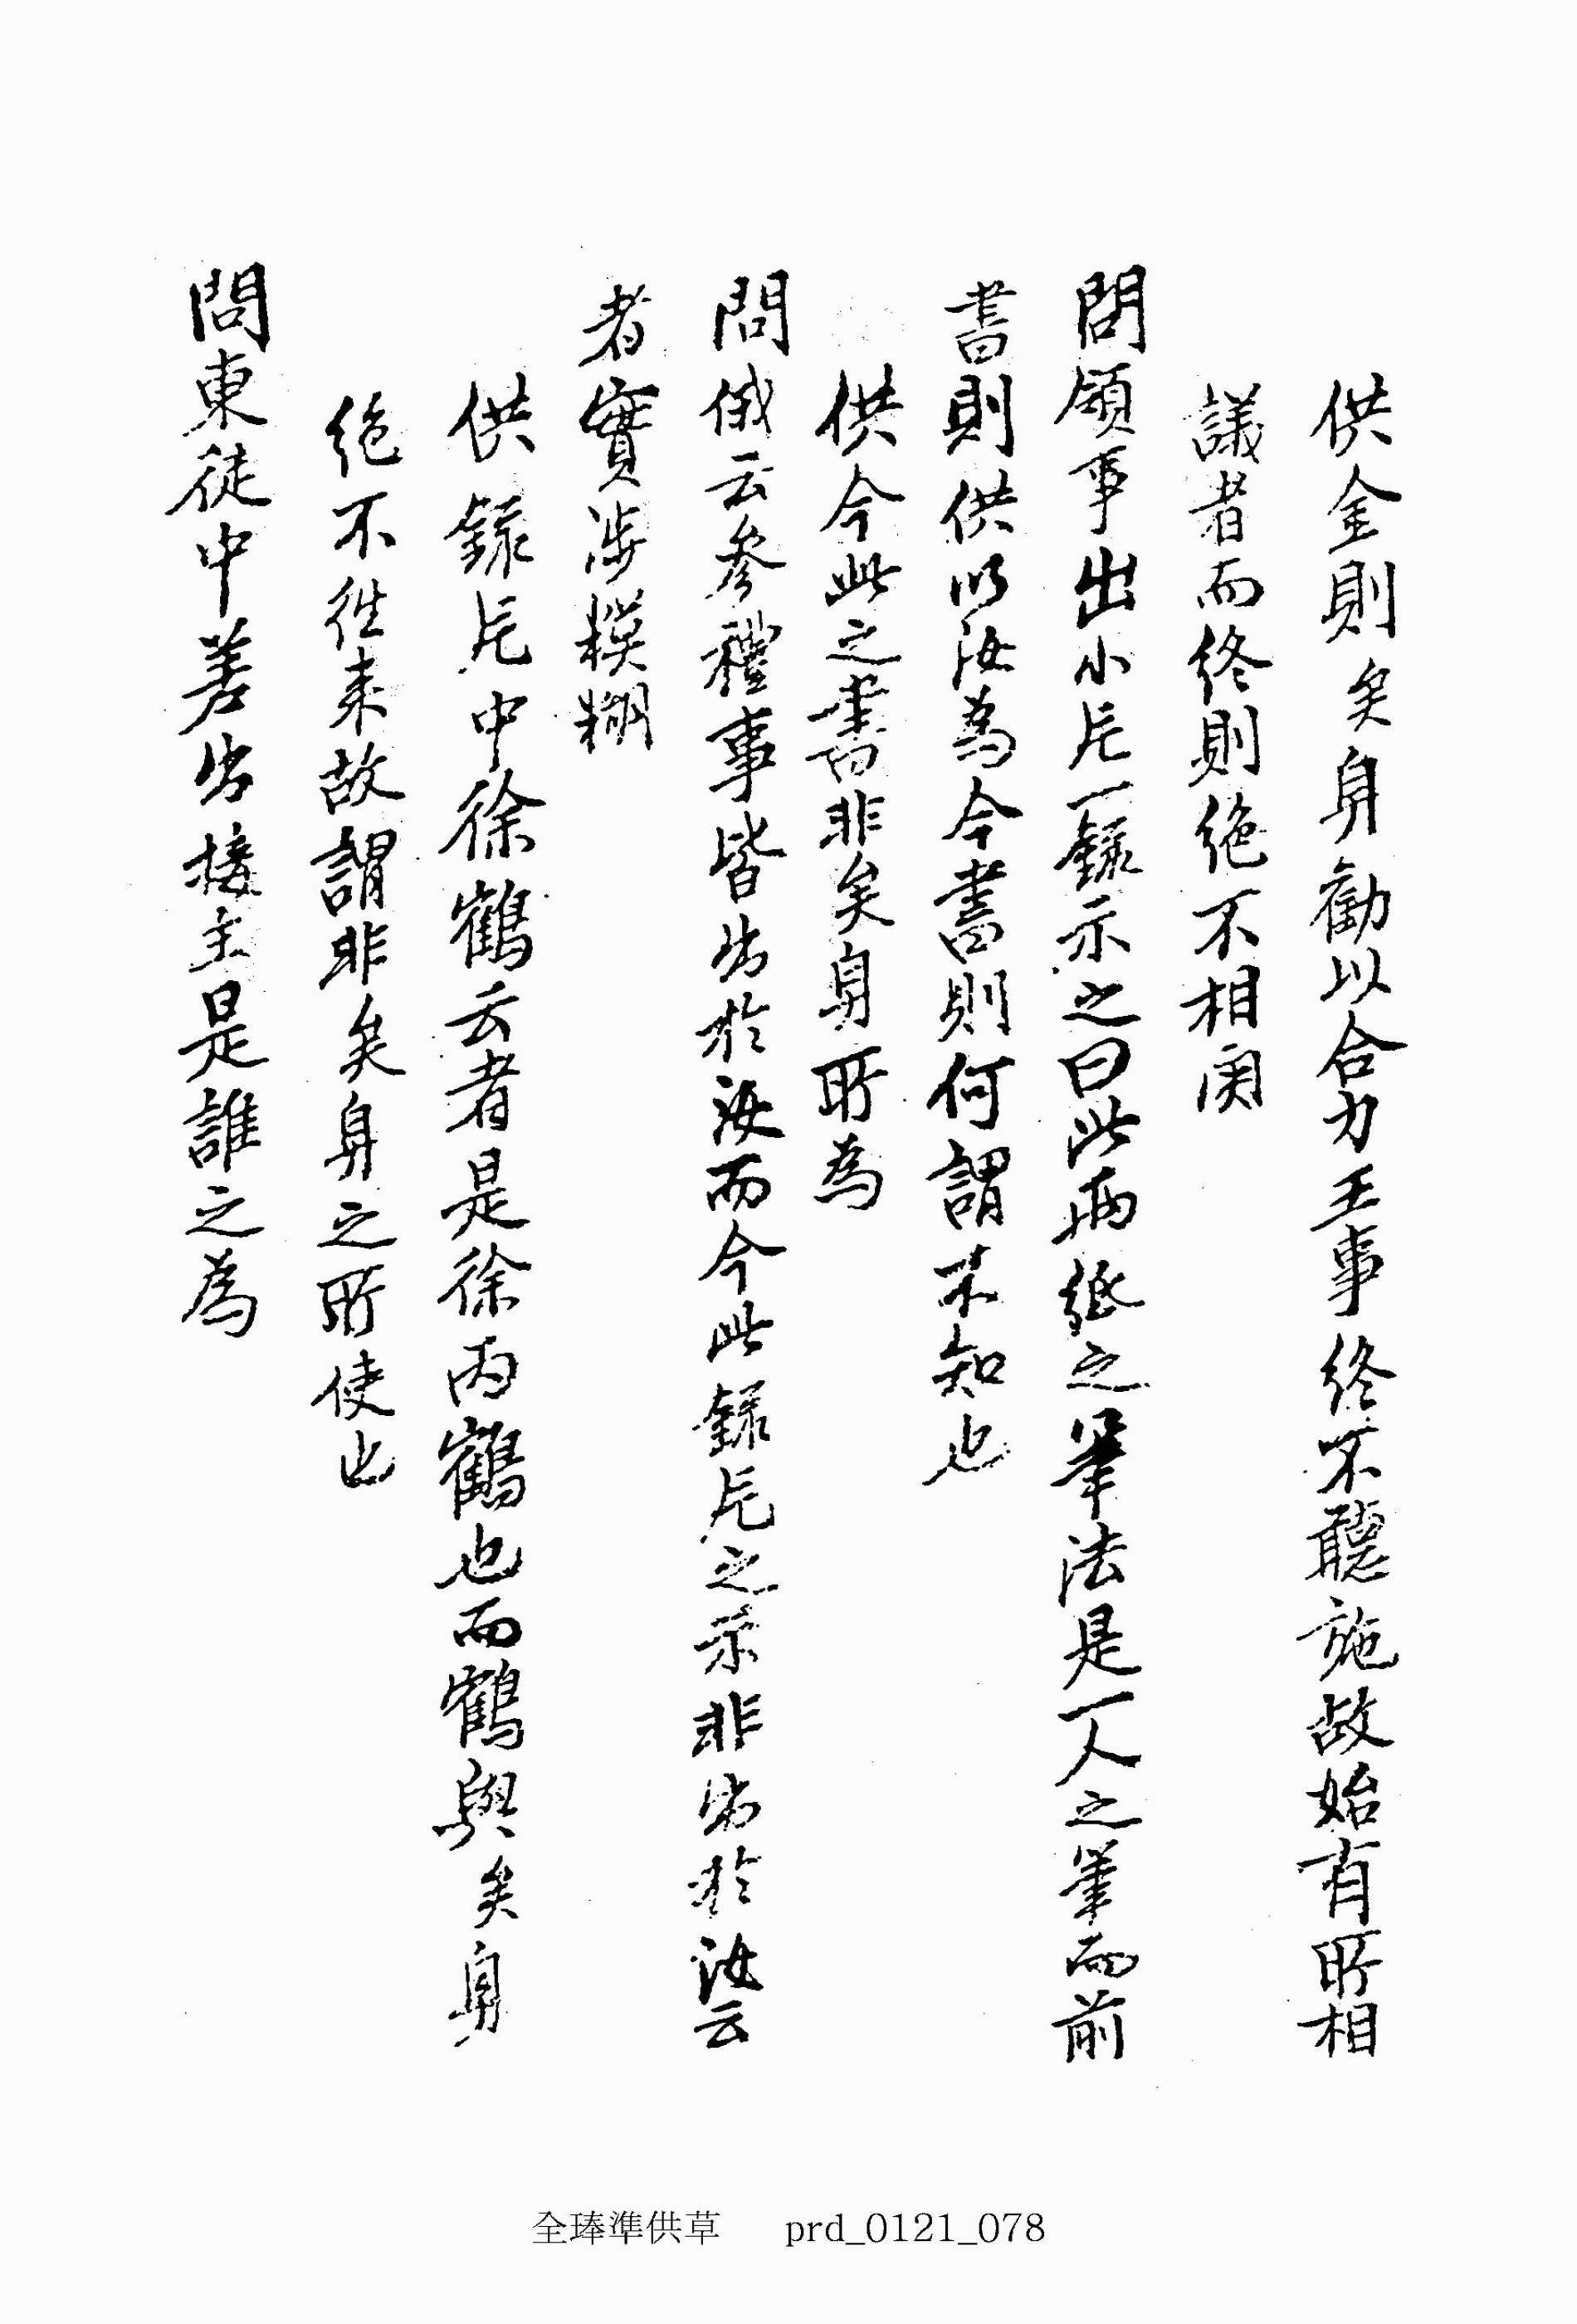 供金則矣身勸以合力王事終不聽施故始有所相
議者而終則絶不相関
問領事出小片一錄示之曰此兩紙之筆法是一人之筆而前
書則供以汝爲今書則何謂不知也
供今此之書非矣身所爲
問俄云參禮事皆出於汝而今此錄片之示非出於汝云
者實涉模糊
供錄片中徐鶴云者是徐丙鶴也而鶴與矣身
絶不徃来故謂非矣身之所使也
問東徒中差出接主是誰之爲
全琫準供草 prd_0121_078